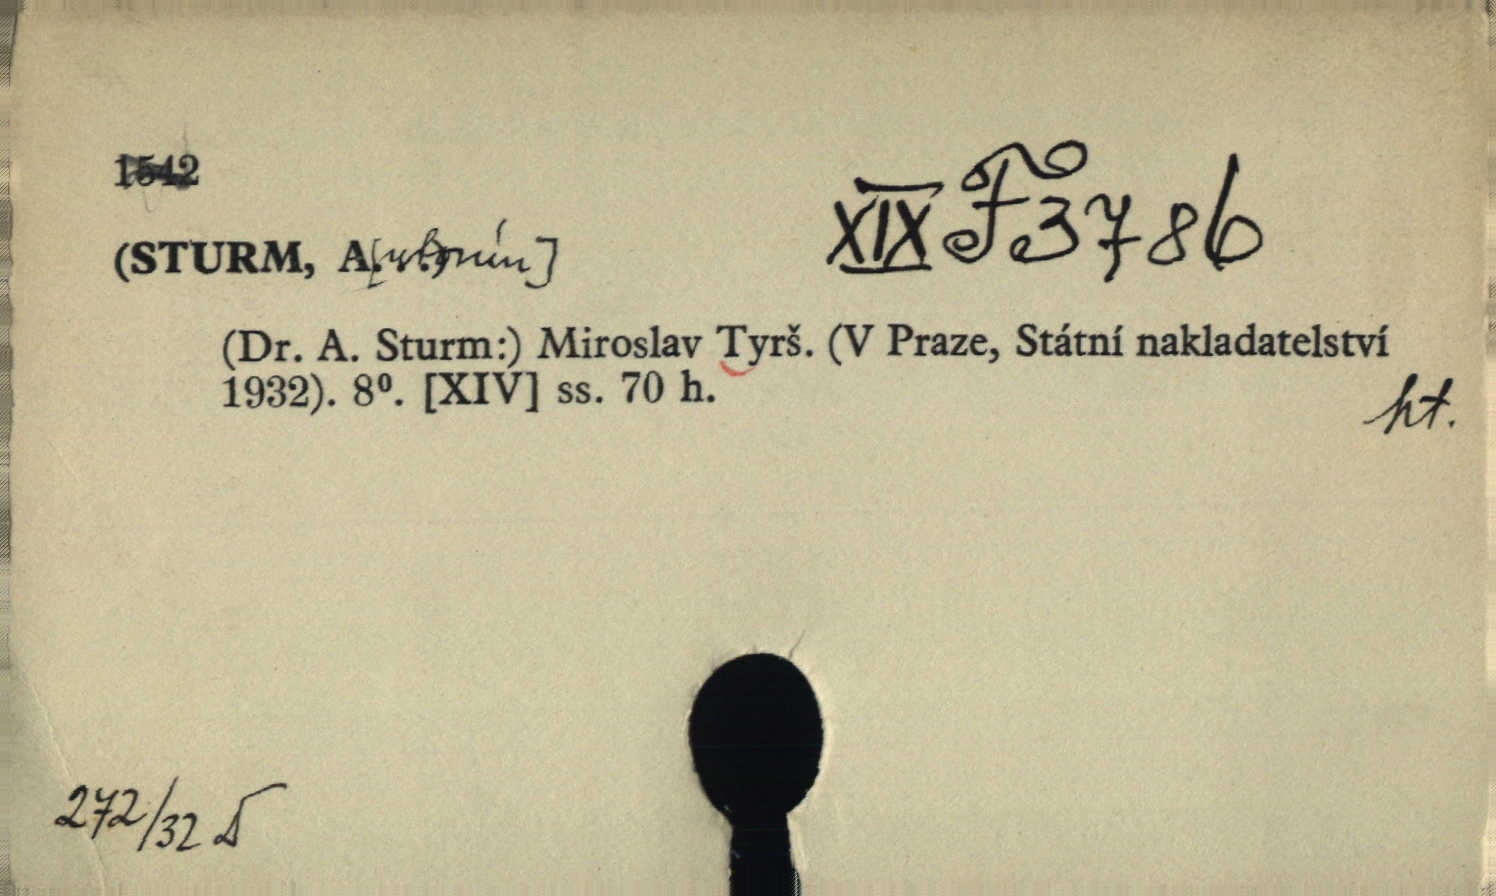 1542
XIX F 3786
(STURM, A[ntonín]
(Dr. A. Sturm:) Miroslav Tyrš. (V Praze, Státní nakladatelství
1932). 8⁰. [XIV] ss. 70 h.
ht.
272/32